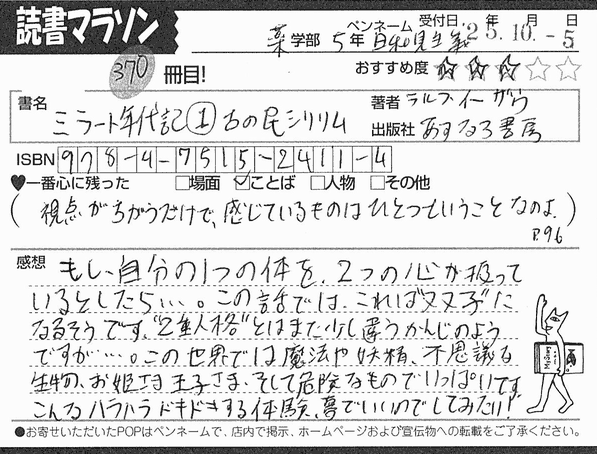 読書マラソン
ペンネーム 受付日: 年 月 日
薬学部 5年 日和見主義 23.10.-5
370 冊目! おすすめ度 ☆☆☆☆☆
書名 著者 ラルフ・イーザウ
ミラート年代記① 古の民シリリム
出版社 あすなろ書房
ISBN 978-4-7515-2411-4
♥一番心に残った □場面 ☑ことば □人物 □その他
(視点がちがうだけで、感じているものはひとつということなのよ。)
P.96
感想 もし、自分の1つの体を、2つの心が扱って
いるとしたら…。この話では、これは"双子"に
なるそうです。"2重人格"とはまた少し違うかんじのよう
ですが…。この世界では魔法や妖精、不思議な
生物、お姫さま王子さま、そして危険なものでいっぱいです。
こんなハラハラドキドキする体験、夢でいいのでしてみたい!
●お寄せいただいたPOPはペンネームで、店内で掲示、ホームページおよび宣伝物への転載をご了承ください。